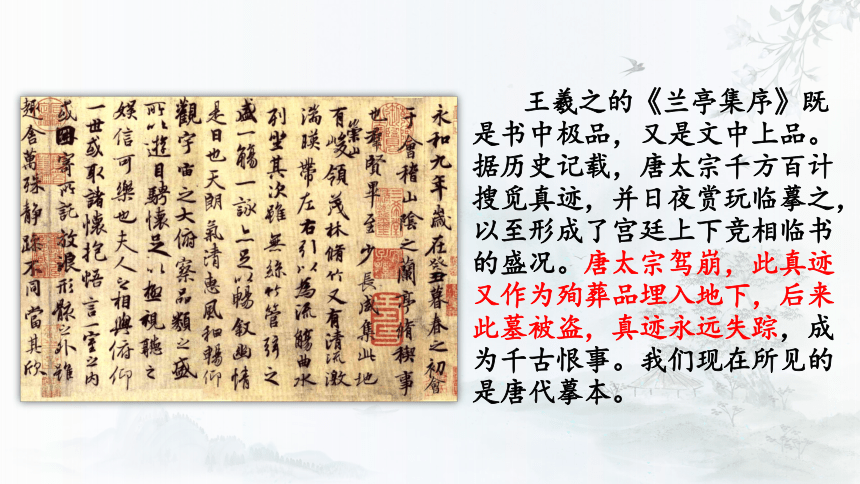 永和九年歲在癸丑暮春之初會
于會稽山陰之蘭亭脩稧事
也羣賢畢至少長咸集此地
有崇山峻領茂林脩竹又有清流激
湍暎帶左右引以為流觴曲水
列坐其次雖無絲竹管弦之
盛一觴一詠亦足以暢敘幽情
是日也天朗氣清惠風和暢仰
觀宇宙之大俯察品類之盛
所以遊目騁懷足以極視聽之
娛信可樂也夫人之相與俯仰
一世或取諸懷抱悟言一室之內
或因寄所託放浪形骸之外雖
趣舍萬殊靜躁不同當其欣
王羲之的《兰亭集序》既
是书中极品，又是文中上品。
据历史记载，唐太宗千方百计
搜觅真迹，并日夜赏玩临摹之，
以至形成了宫廷上下竞相临书
的盛况。唐太宗驾崩，此真迹
又作为殉葬品埋入地下，后来
此墓被盗，真迹永远失踪，成
为千古恨事。我们现在所见的
是唐代摹本。